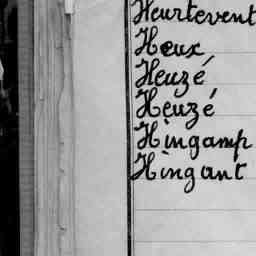 Heurtevent
Heux
Heuzé
Heuzé
Hingamp
Hingant